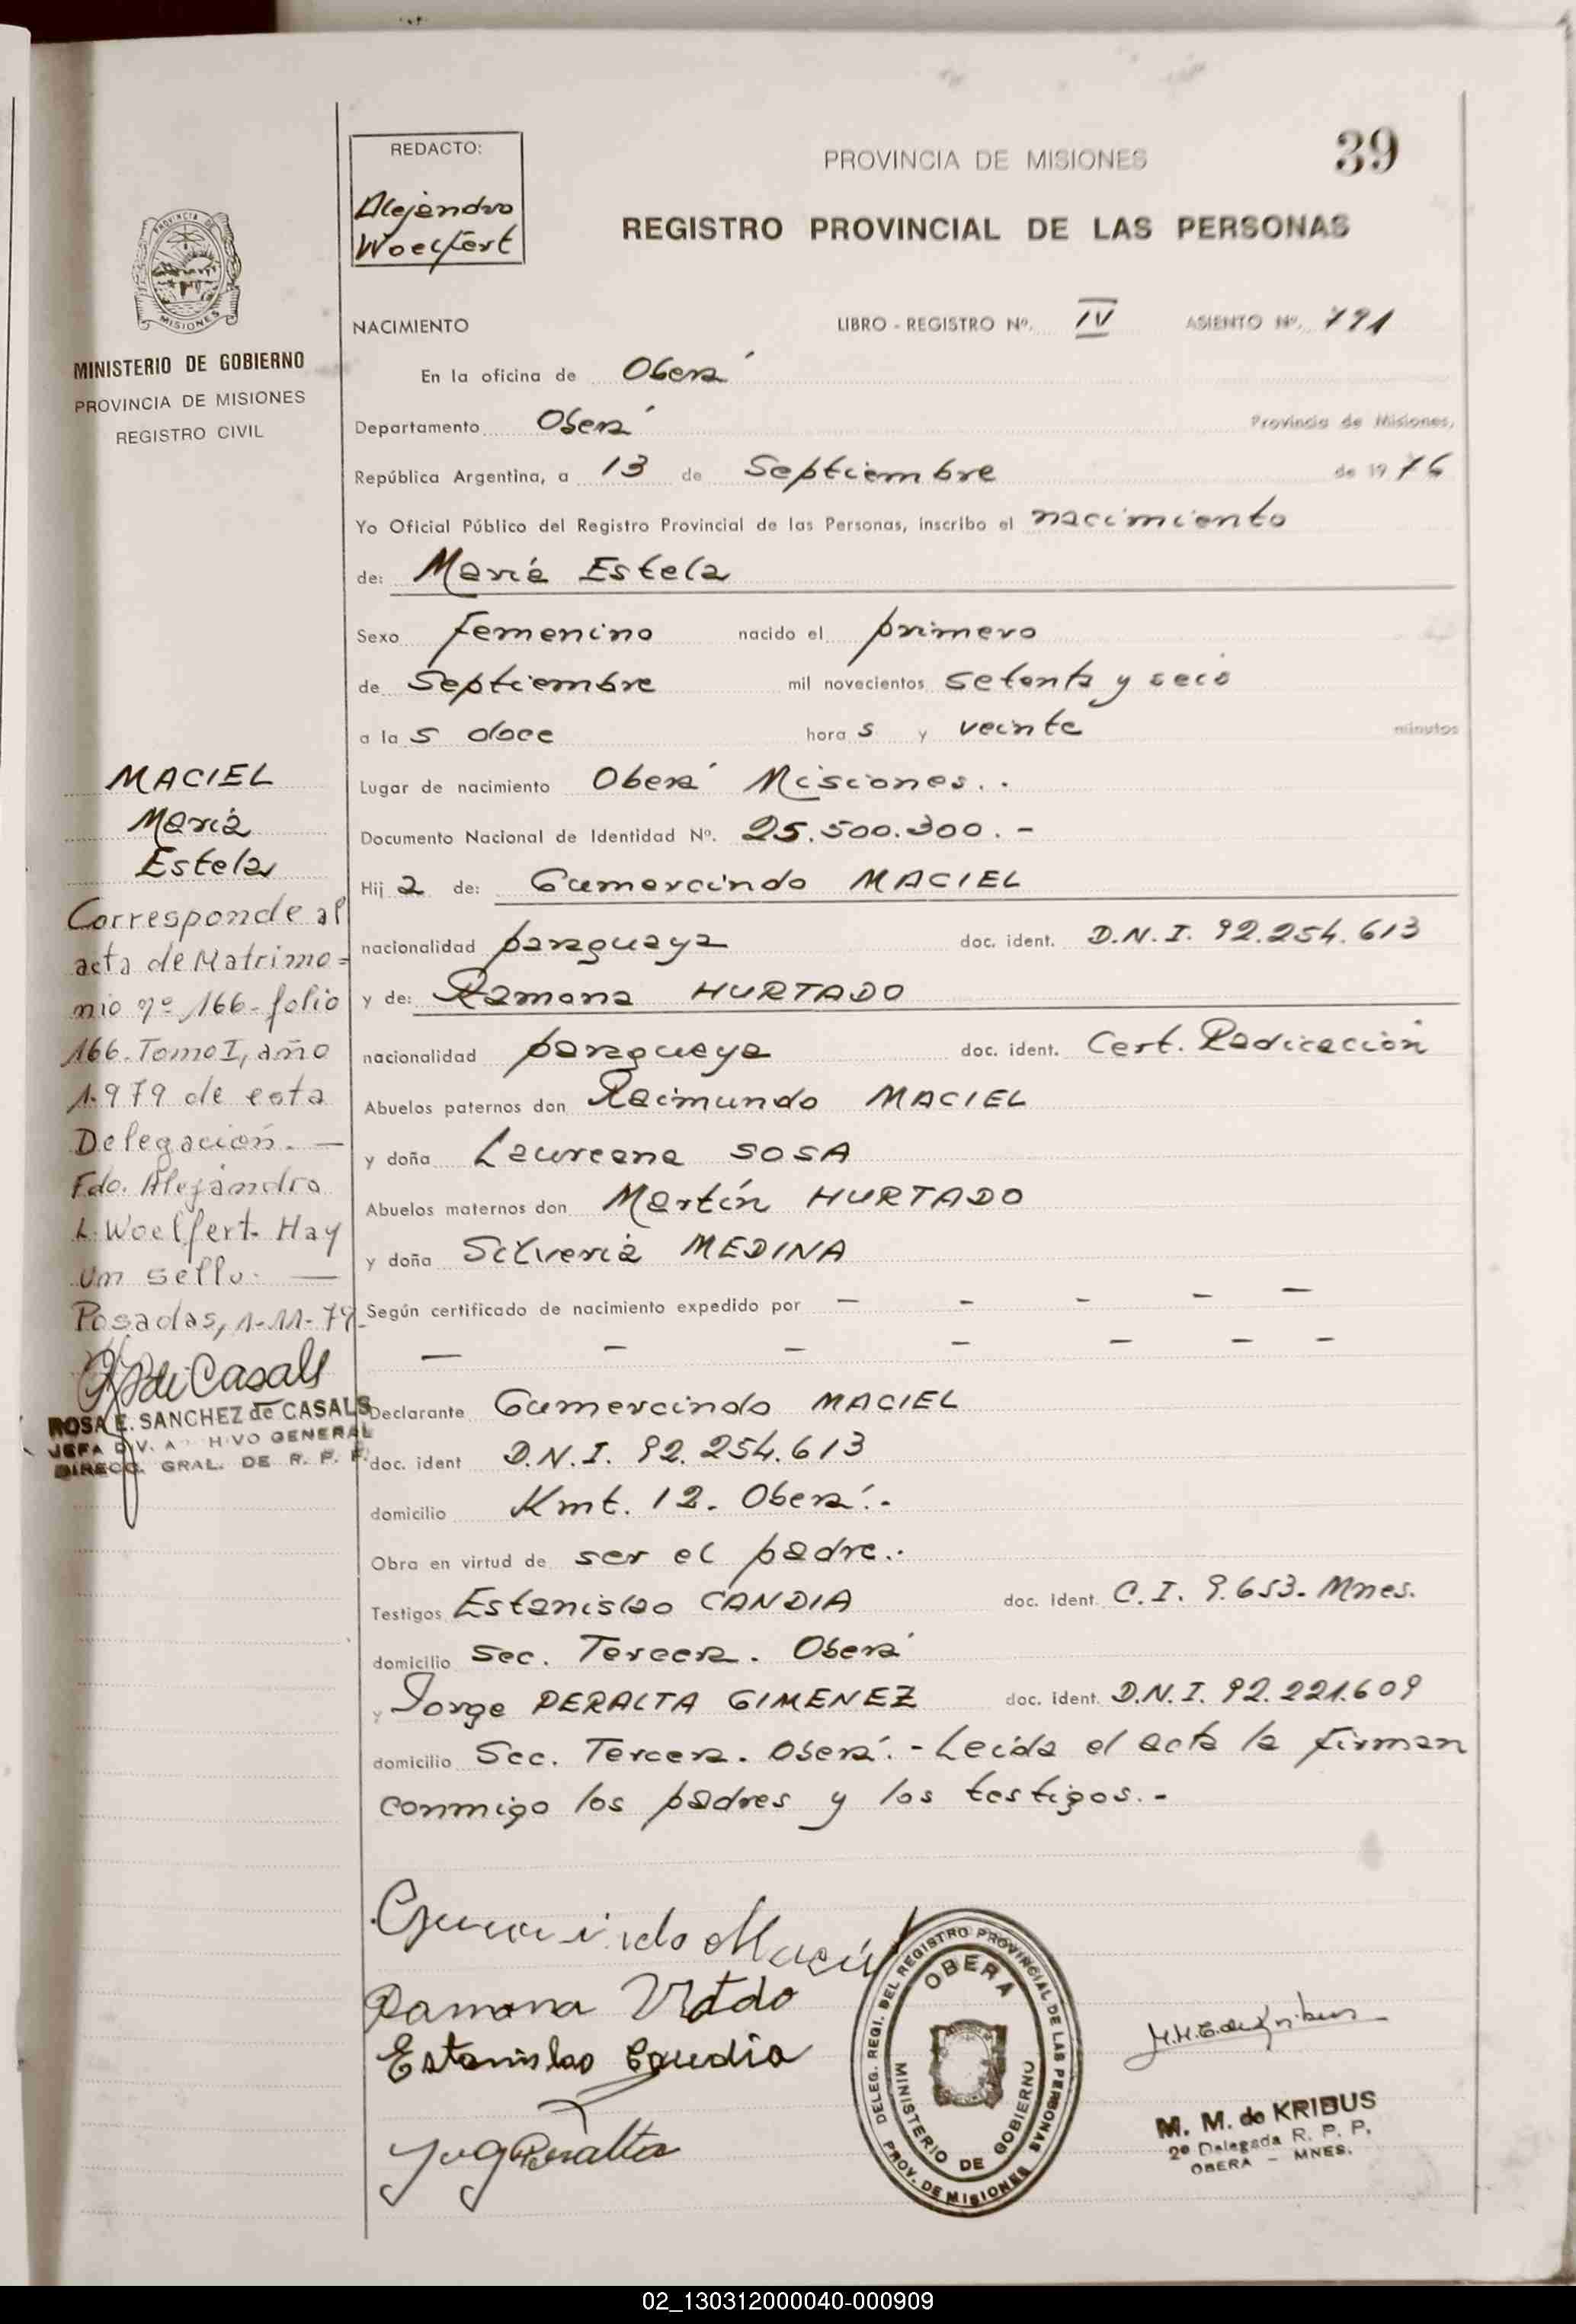 39
REDACTO:
Alejandro
Woelfert
PROVINCIA DE MISIONES
REGISTRO PROVINCIAL DE LAS PERSONAS
PROVINCIA DE
MISIONES
MINISTERIO DE GOBIERNO
PROVINCIA DE MISIONES
REGISTRO CIVIL
NACIMIENTO LIBRO - REGISTRO Nº. IV ASIENTO Nº. 791
En la oficina de Oberá
Departamento Oberá Provincia de Misiones,
República Argentina, a 13 de Septiembre de 1976
Yo Oficial Público del Registro Provincial de las Personas, inscribo el nacimiento
de: María Estela
Sexo femenino nacido el primero
de Septiembre mil novecientos setenta y seis
a las doce horas y veinte minutos
Lugar de nacimiento Oberá Misiones.-
Documento Nacional de Identidad Nº. 25.500.300.-
Hija de: Gumercindo MACIEL
nacionalidad paraguaya doc. ident. D.N.I. 92.254.613
y de: Ramona HURTADO
nacionalidad paraguaya doc. ident. Cert. Radicación
Abuelos paternos don Raimundo MACIEL
y doña Laureana SOSA
Abuelos maternos don Martín HURTADO
y doña Silveria MEDINA
Según certificado de nacimiento expedido por - - - - -
- - - - - - -
Declarante Gumercindo MACIEL
doc. ident D.N.I. 92.254.613
domicilio Kmt. 12. Oberá.-
Obra en virtud de ser el padre.-
Testigos Estanislao CANDIA doc. ident. C.I. 9.653. Mnes.
domicilio Sec. Tercera. Oberá
y Jorge PERALTA GIMENEZ doc. ident. D.N.I. 92.221.609
domicilio Sec. Tercera. Oberá.- Leída el acta la firman
conmigo los padres y los testigos.-
MACIEL
María
Estela
Corresponde al
acta de Matrimo=
nio nº 166- folio
166. Tomo I, año
1.979 de esta
Delegación.-
Fdo. Alejandro
L. Woelfert. Hay
un sello.-
Posadas, 1-11-79.
R S de Casals
ROSA E. SANCHEZ de CASALS
JEFA DIV. ARCHIVO GENERAL
DIRECC. GRAL. DE R. P. P.
Gumercindo Maciel
Ramona Utado
Estanislao Candia
Jorge Peralta
DELEG. REGI. DEL REGISTRO PROVINCIAL DE LAS PERSONAS
PROV. DE MISIONES
OBERA
MINISTERIO DE GOBIERNO
M. M. de KRIBUS
2º Delegada R. P. P.
OBERA - MNES.
02_130312000040-000909